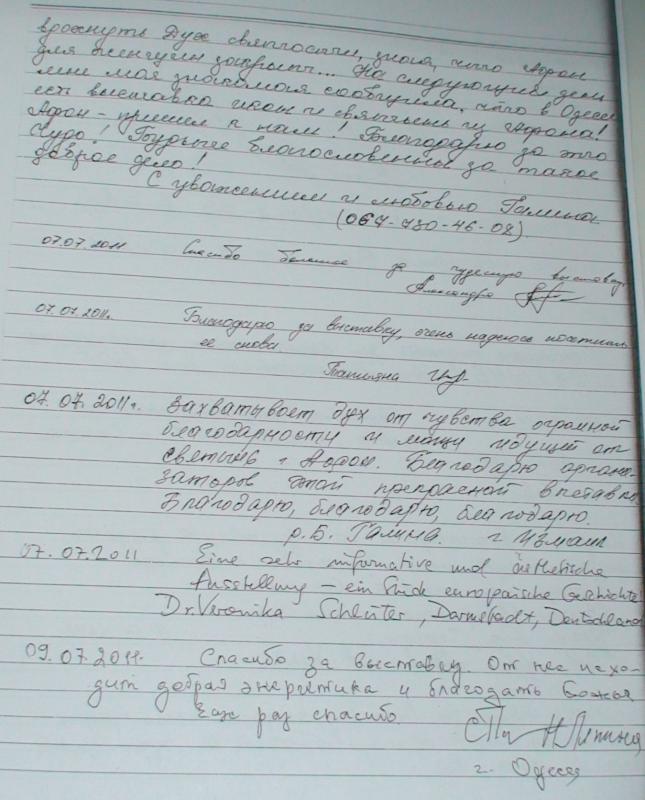 вдохнуть Дух святости, зная, что Афон
для женщин закрыт... На следующий день
мне моя знакомая сообщила, что в Одессе
есть выставка икон и святынь из Афона!
Афон - пришел к нам! Благодарю за это
Чудо! Будьте благословенны за такое
доброе дело!
С уважением и любовью Галина
(067-780-46-08)
07.07.2011 Спасибо большое за чудесную выставку.
Александра
07.07.2011г. Благодарю за выставку, очень надеюсь посетить
ее снова.
Татьяна
07.07.2011г. Захватывает дух от чувства огромной
благодарности и мощи идущей от
святынь г Афон. Благодарю органи-
заторов этой прекрасной выставки
Благодарю, благодарю, благодарю.
р.Б. Галина. г Измаил
07.07.2011 Eine sehr informative und ästhetische
Ausstellung – ein Stück europäische Geschichte!
Dr. Veronika Schlüter, Darmstadt, Deutschland
09.07.2011г. Спасибо за выставку. От нее исхо-
дит добрая энергетика и благодать Божья
Еще раз спасибо.
г. Одесса